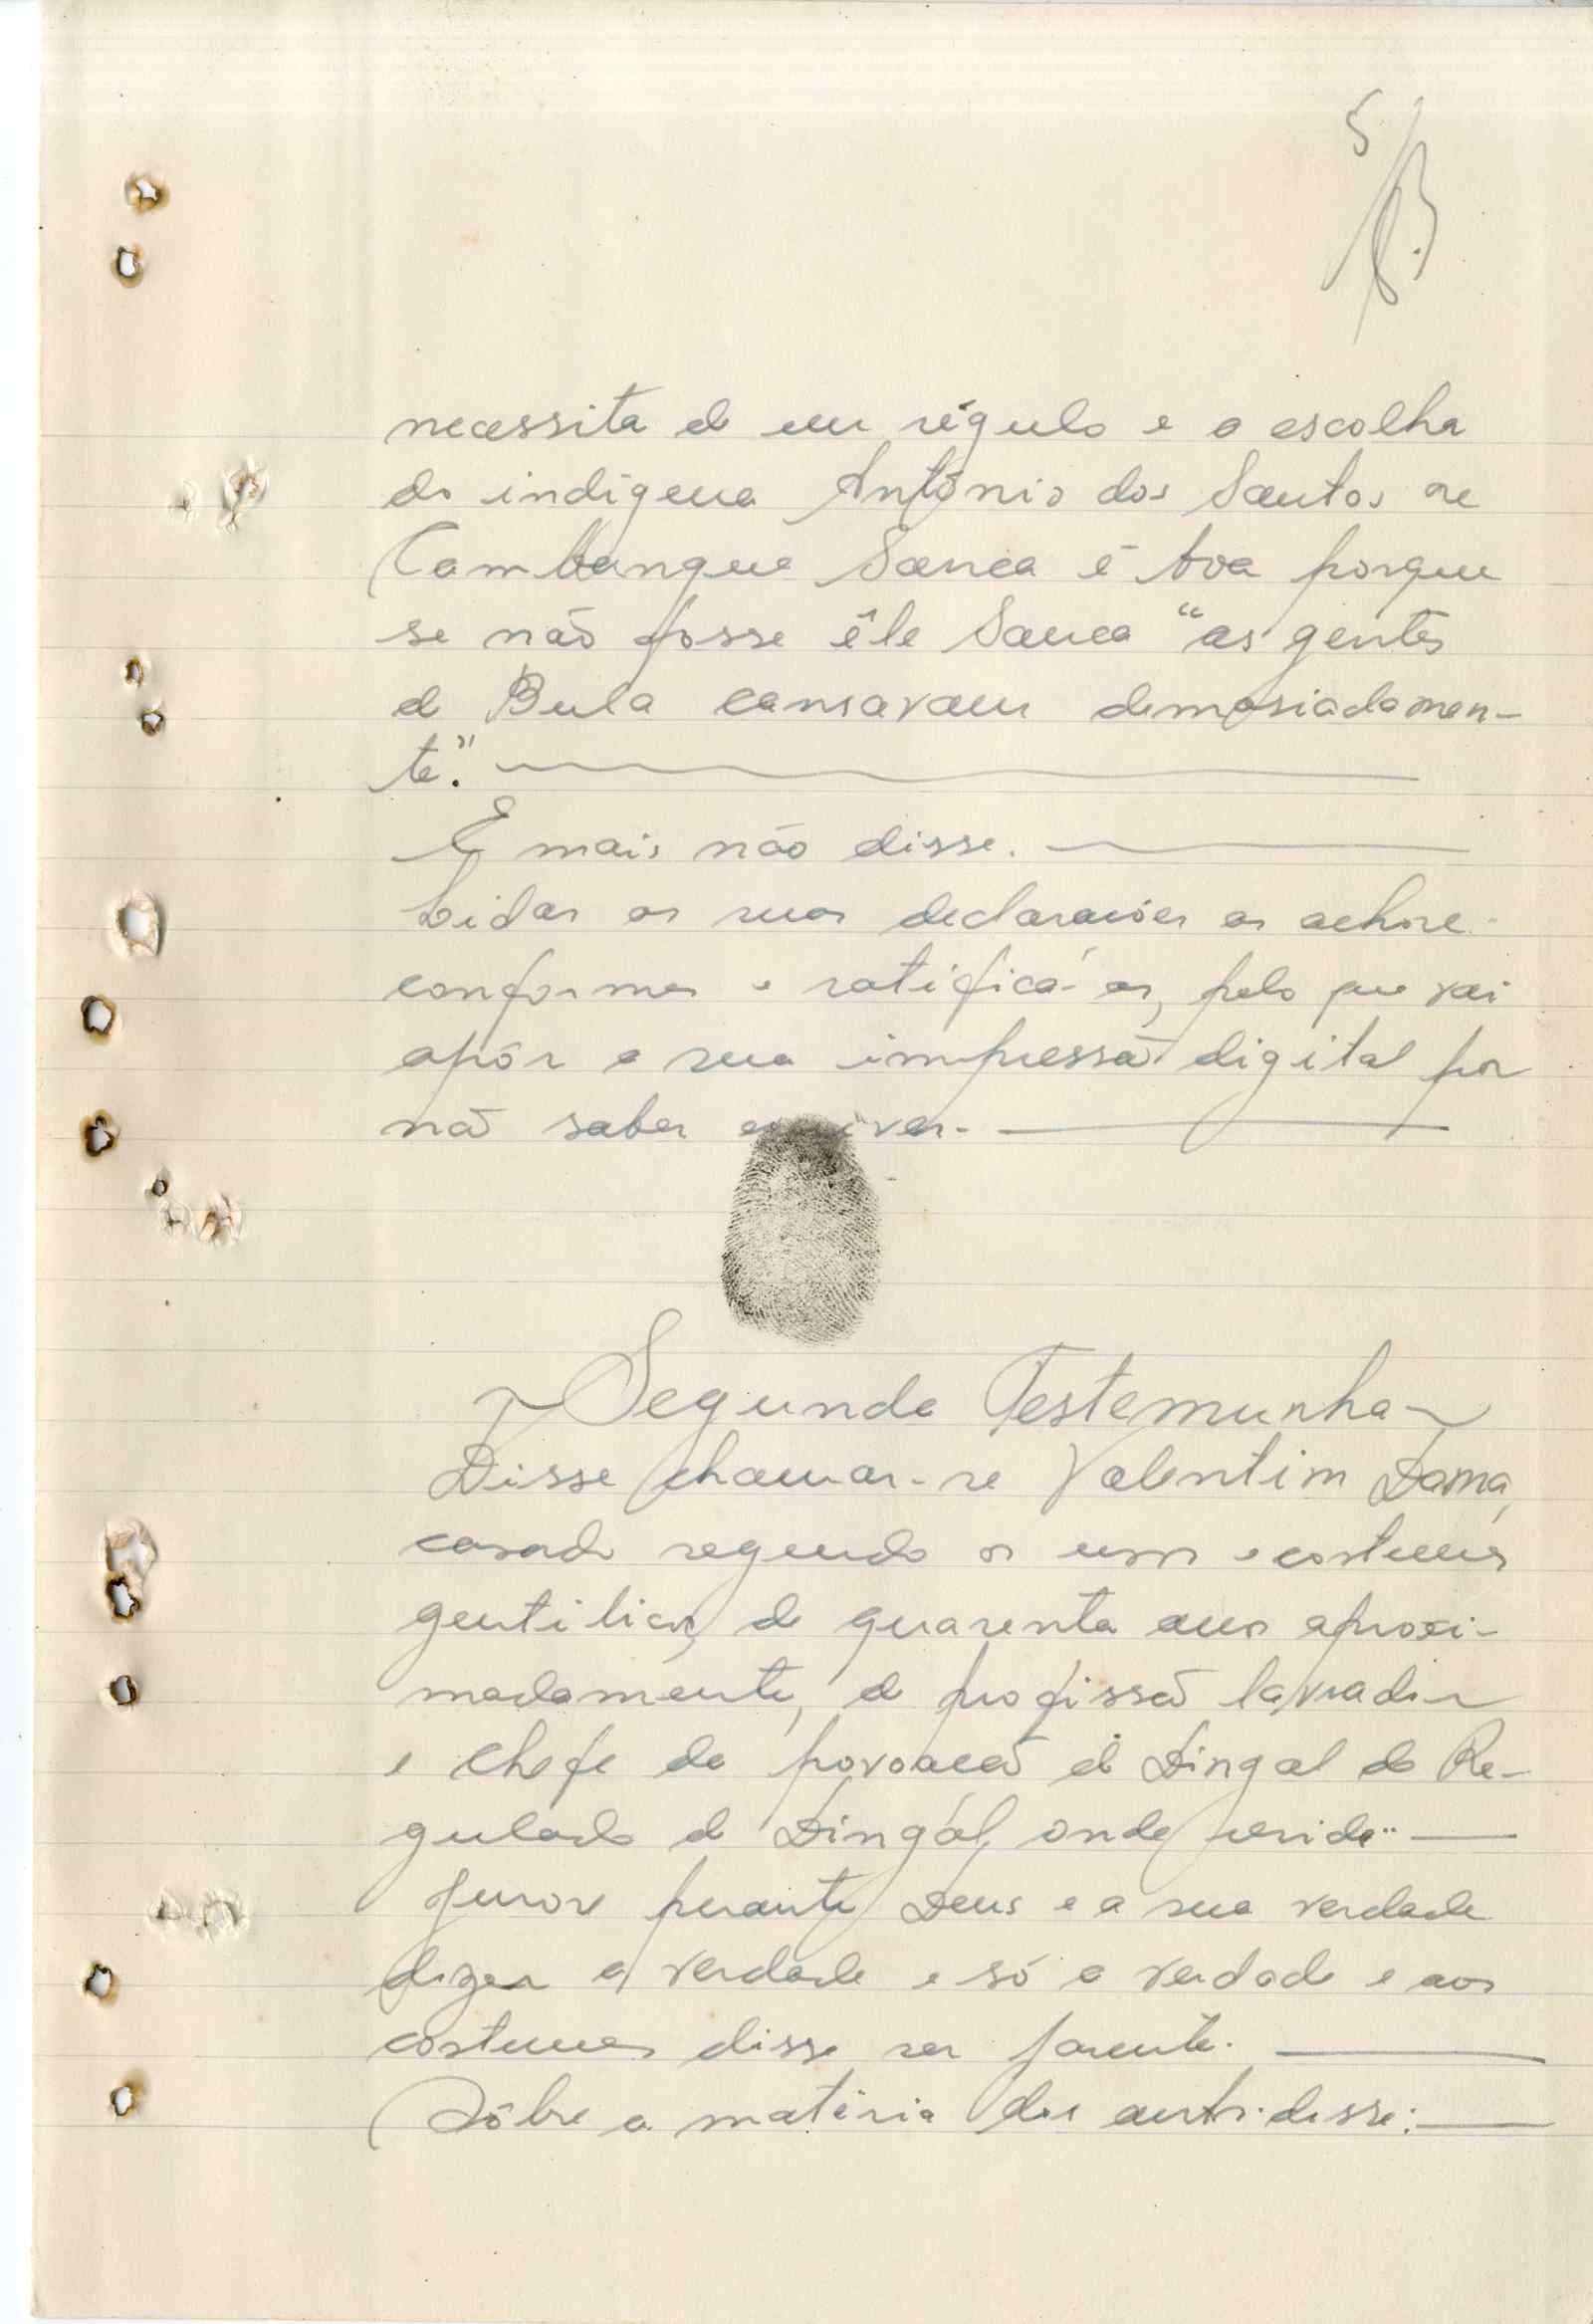 5
necessita de um régulo e a escolha
do indígena António dos Santos ne
Cambangue Sanca é boa porque
se não fosse êle Sanca "as gentes
de Bula cansavam demasiadamen-
te."
E mais não disse.
Lidas as suas declarações as achou
conformes e ratificá-as, pelo que vai
apôr a sua impressão digital por
não saber escrever.
Segunda Testemunha
Disse chamar-se Valentim Damá,
casado segundo os usos e costumes
gentilicos, de quarenta anos aproxi-
madamente, de profissão lavrador
e chefe da povoação de Dingal do Re-
gulado de Dingál, onde reside.
Jurou perante Deus e a sua verdade
dizer a verdade e só a verdade e aos
costumes disse ser parente.
Sôbre a matéria dos autos disse: